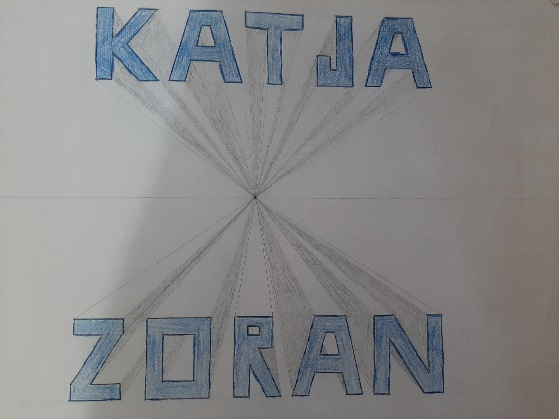 KATJA
ZORAN